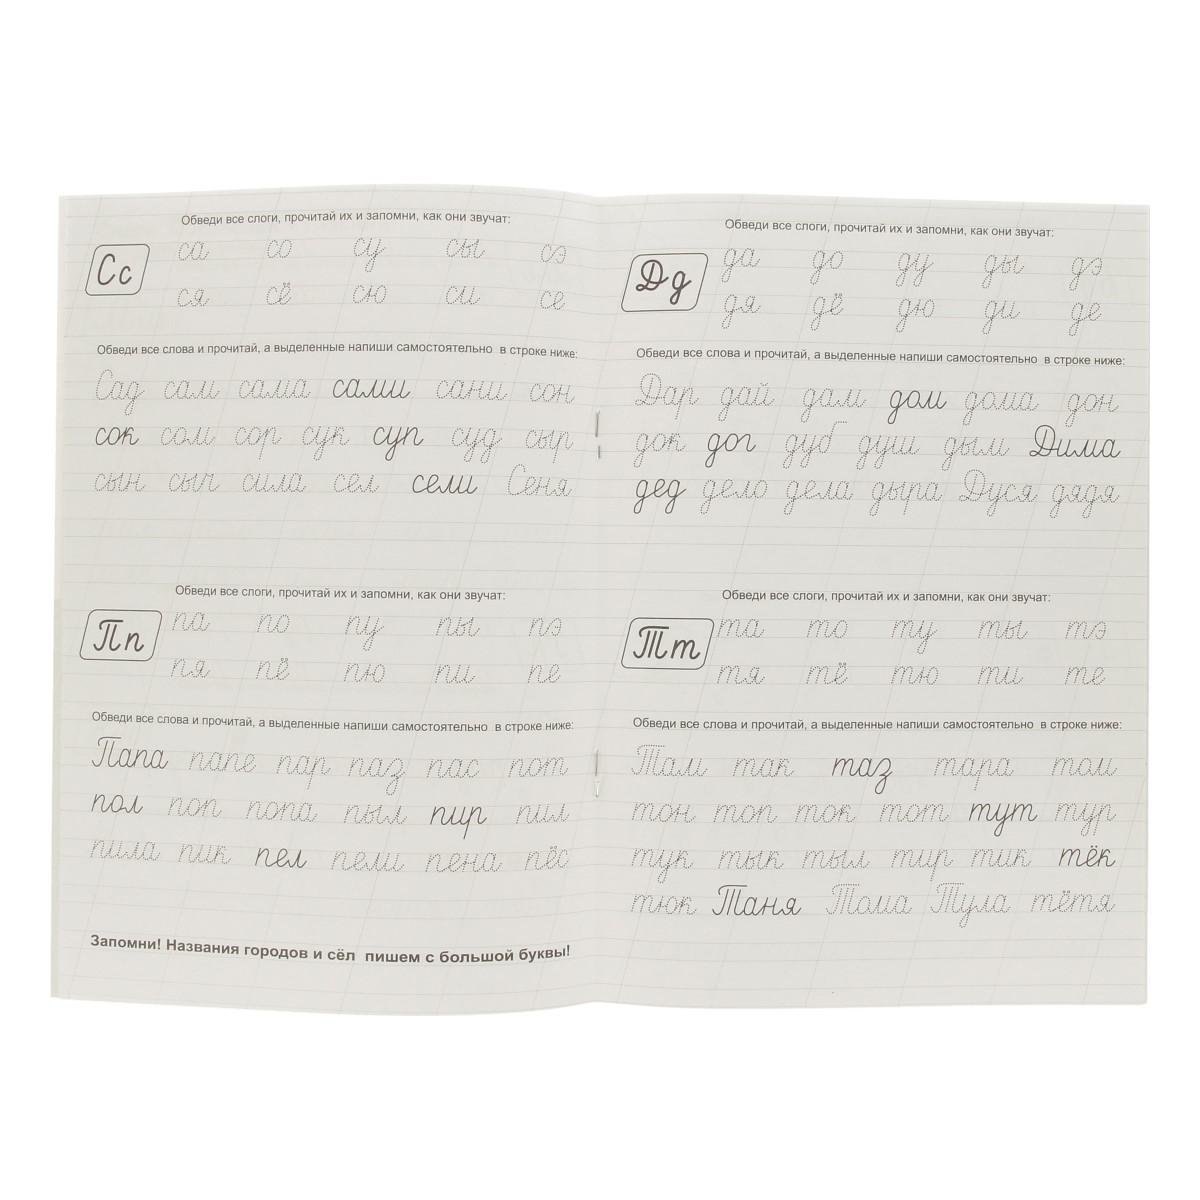 Обведи все слоги, прочитай их и запомни, как они звучат:
Сс
са со су сы сэ
ся сё сю си се
Обведи все слова и прочитай, а выделенные напиши самостоятельно в строке ниже:
Сад сам сама сами сани сон
сок сом сор сук суп суд сыр
сын сыч сила сел сели Сеня
Обведи все слоги, прочитай их и запомни, как они звучат:
Пп
па по пу пы пэ
пя пё пю пи пе
Обведи все слова и прочитай, а выделенные напиши самостоятельно в строке ниже:
Папа папе пар паз пас пот
пол поп попа пыл пир пил
пила пик пел пели пена пёс
Запомни! Названия городов и сёл пишем с большой буквы!
Обведи все слоги, прочитай их и запомни, как они звучат:
Дд
да до ду ды дэ
дя дё дю ди де
Обведи все слова и прочитай, а выделенные напиши самостоятельно в строке ниже:
Дар дай дам дом дома дон
док дог дуб душ дым Дима
дед дело дела дыра Дуся дядя
Обведи все слоги, прочитай их и запомни, как они звучат:
Тт
та то ту ты тэ
тя тё тю ти те
Обведи все слова и прочитай, а выделенные напиши самостоятельно в строке ниже:
Там так таз тара том
тон топ ток тот тут тур
тук тык тыл тир тик тёк
тюк Таня Тома Тула тётя